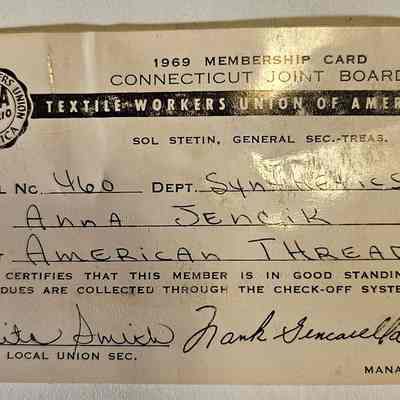 1969 MEMBERSHIP CARD
CONNECTICUT JOINT BOARD
TEXTILE WORKERS UNION OF AMER
SOL STETIN, GENERAL SEC.-TREAS.
L NO. 460 DEPT. Synthetics
Anna Jencik
American Thread
CERTIFIES THAT THIS MEMBER IS IN GOOD STANDING
DUES ARE COLLECTED THROUGH THE CHECK-OFF SYSTE
Smith Frank
LOCAL UNION SEC. MANA